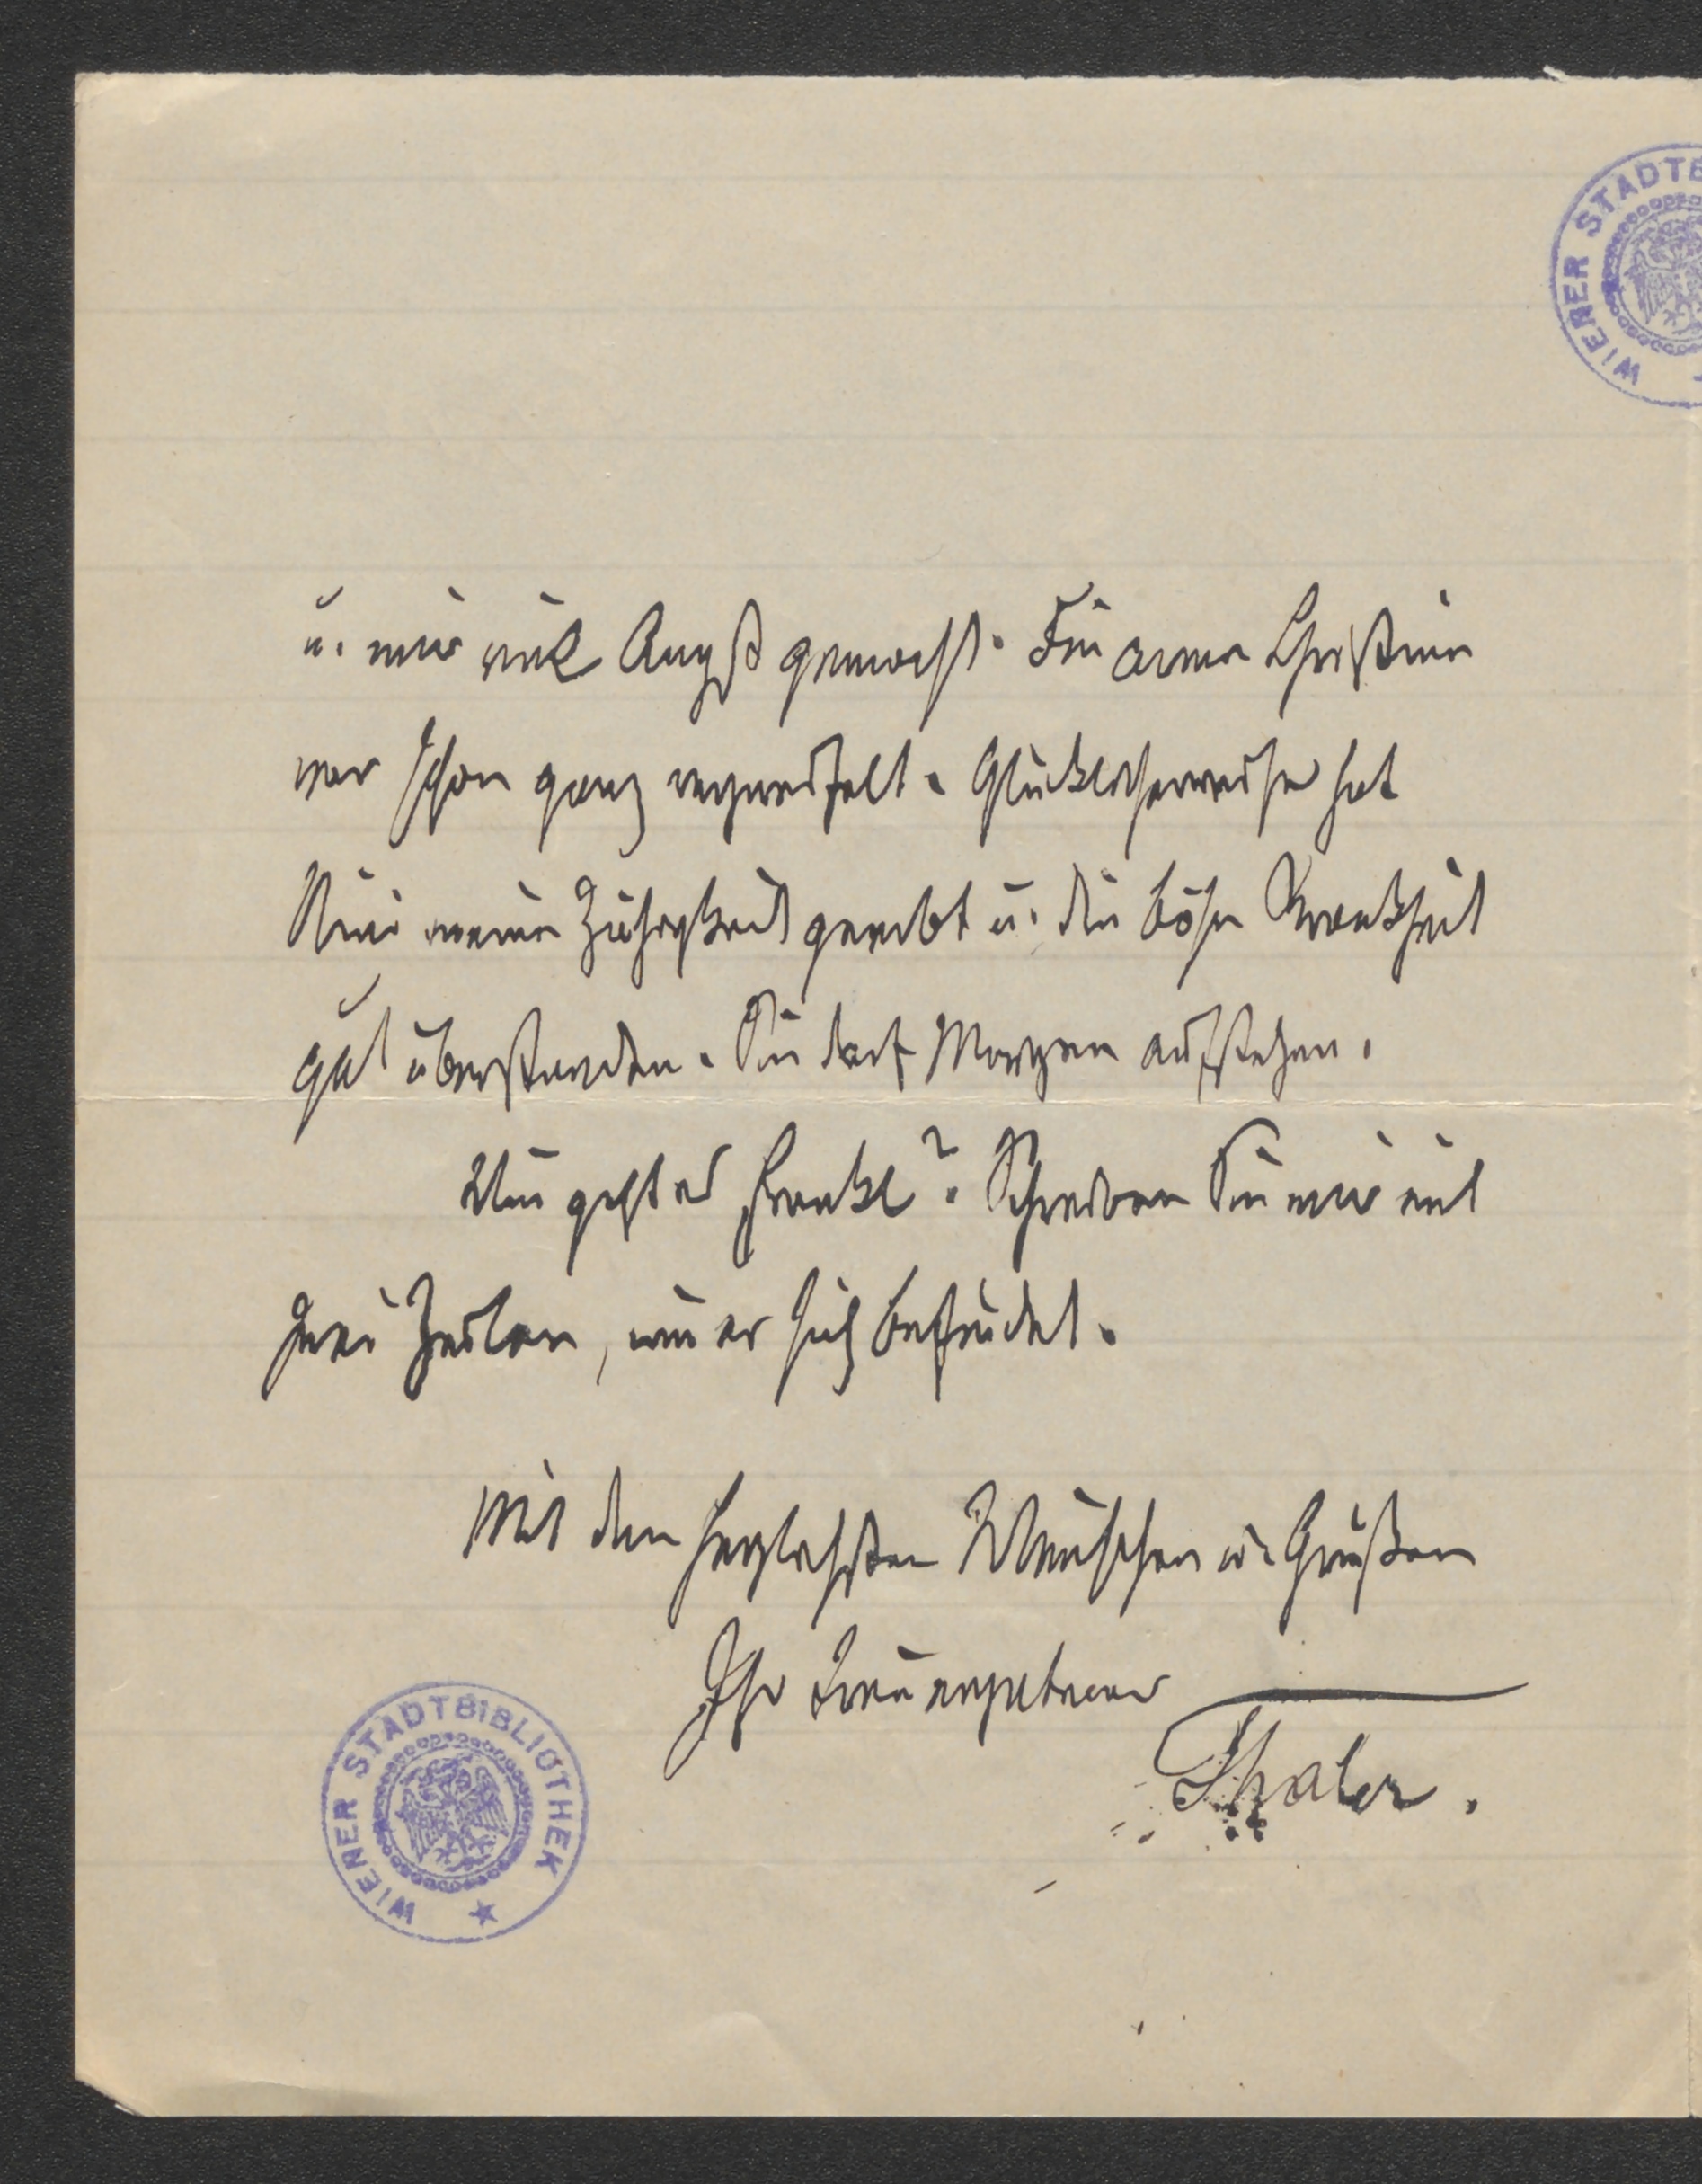 WIENER STADTB
u. mir viel Angst gemacht. Die arme Christine
war schon ganz verzweifelt. Glücklicherweise hat
meine Zähigkeit geerbt u. die böse Krankheit
gut überstanden. Sie darf Morgen aufstehen.
Wie geht es Frankl? Schreiben Sie mir mit
zwei Zeilen, wie er sich befindet.
Mit den herzlichsten Wünschen u. Grüßen
Ihr treu ergebener
Thaler.
WIENER STADTBIBLIOTHEK